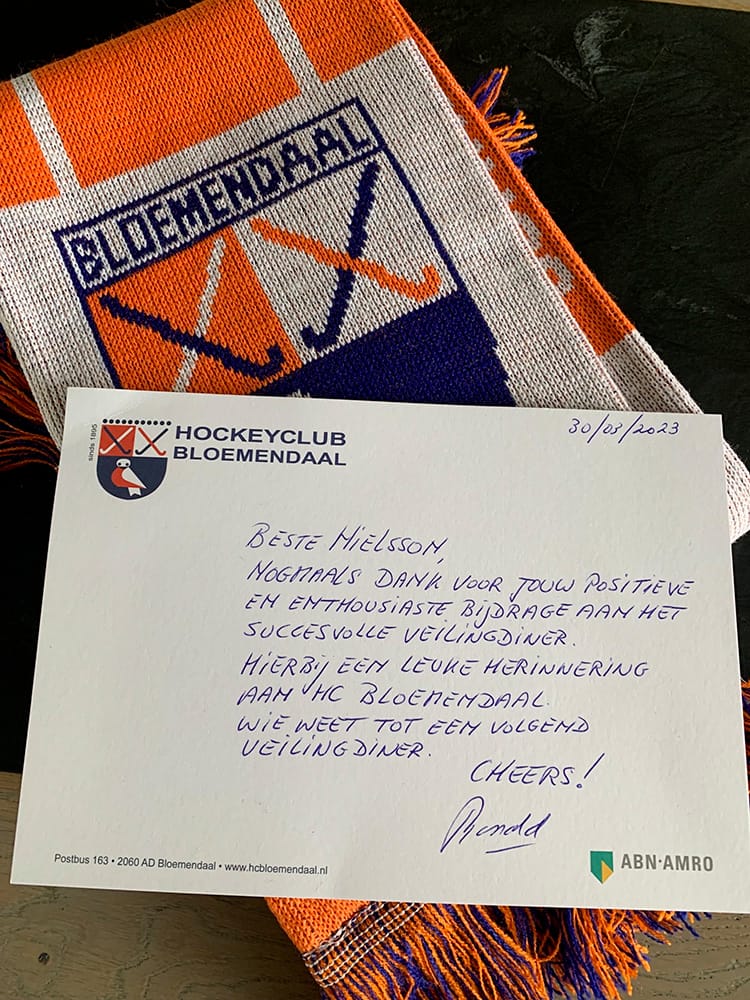 BLOEMENDAAL
sinds 1895
HOCKEYCLUB
BLOEMENDAAL
30/03/2023
BESTE NIELSSON,
NOGMAALS DANK VOOR JOUW POSITIEVE
EN ENTHOUSIASTE BIJDRAGE AAN HET
SUCCESVOLLE VEILINGDINER.
HIERBIJ EEN LEUKE HERINNERING
AAN HC BLOEMENDAAL.
WIE WEET TOT EEN VOLGEND
VEILINGDINER.
CHEERS!
Ronald
Postbus 163 • 2060 AD Bloemendaal • www.hcbloemendaal.nl
ABN·AMRO